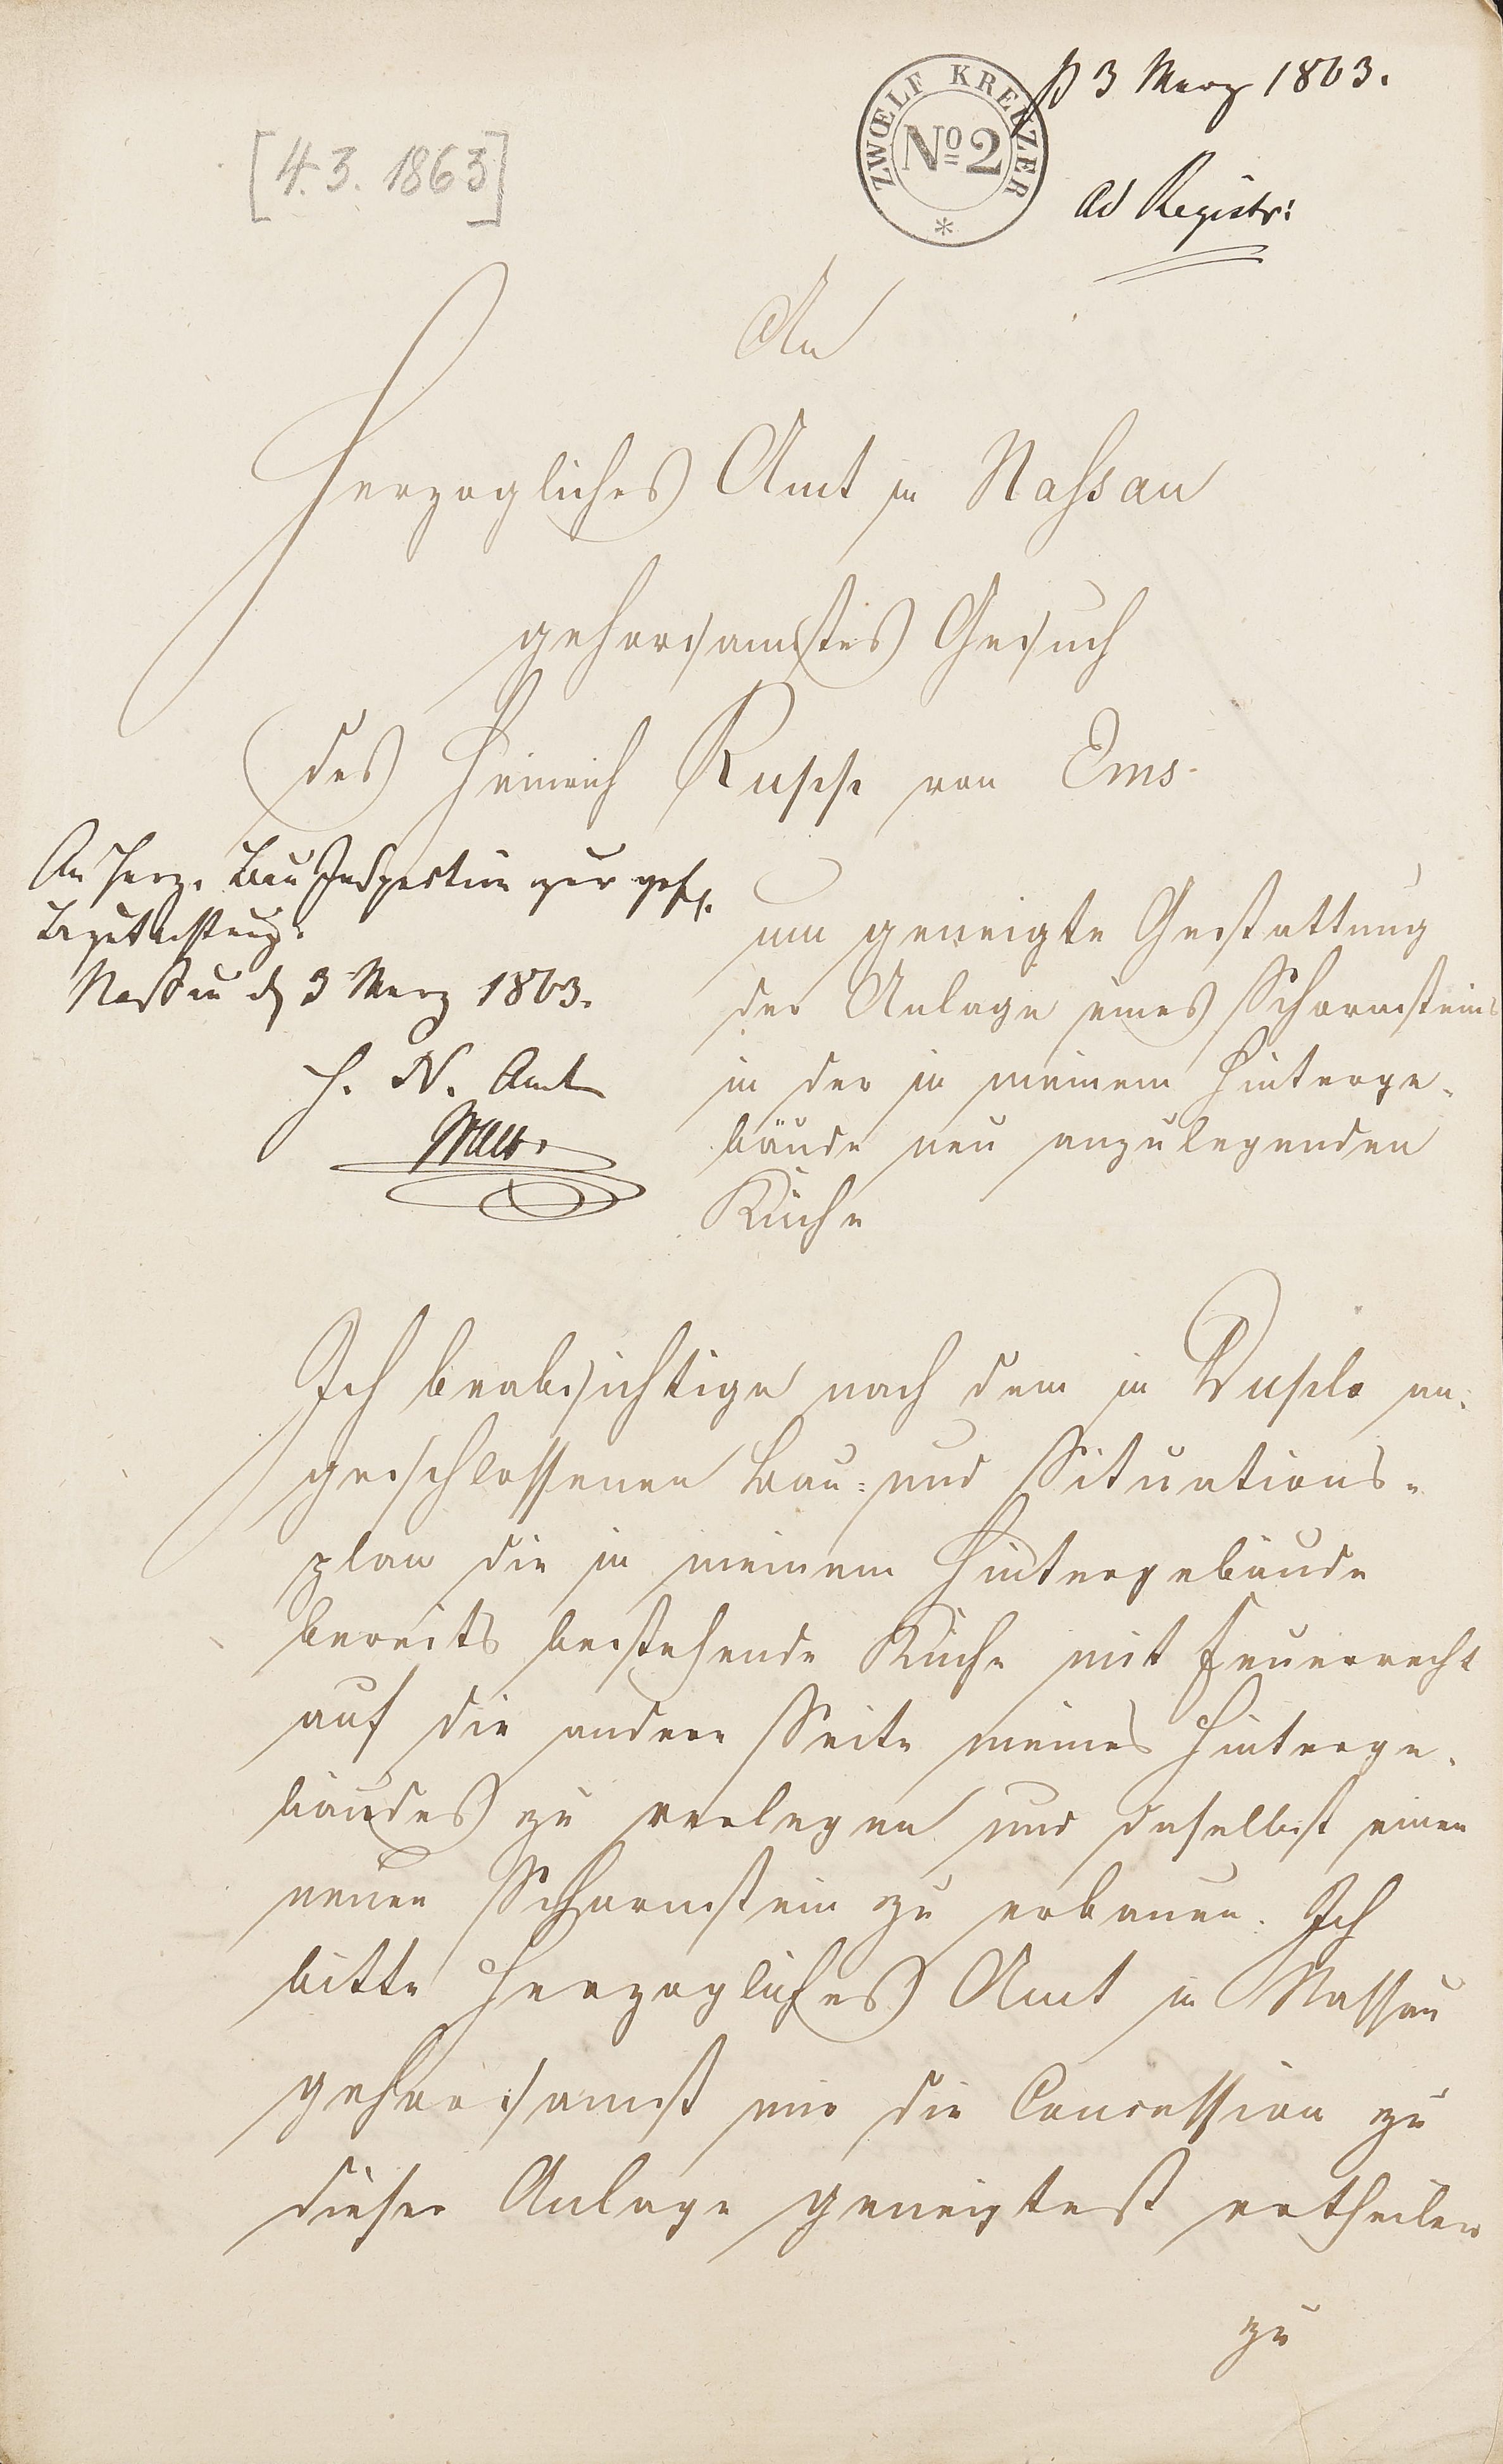 ZWŒLF KREUZER
No 2
3 Merz 1863.
[4.3.1863]
ad Registr:
An
Herzogliches Amt in Nassau
gehorsamstes Gesuch
des Heinrich Rupp von Ems
An Herz. Bau Inspection zur gefl.
Begutachtung.
Nassau d 3 Merz 1863.
H. N. Amt
um geneigte Gestattung
der Anlage eines Schornsteins
in der in meinem Hinterge-
bäude neu anzulegenden
Küche
Ich beabsichtige nach dem in Duplo an-
geschlossenen Bau- und Situations-
plan die in meinem Hintergebäude
bereits bestehende Küche mit Feuerrecht
auf die andere Seite meines Hinterge-
bäudes zu verlegen und daselbst einen
neuen Schornstein zu erbauen. Ich
bitte Herzogliches Amt in Nassau
gehorsamst mir die Concession zu
dieser Anlage geneigtest ertheilen
zu